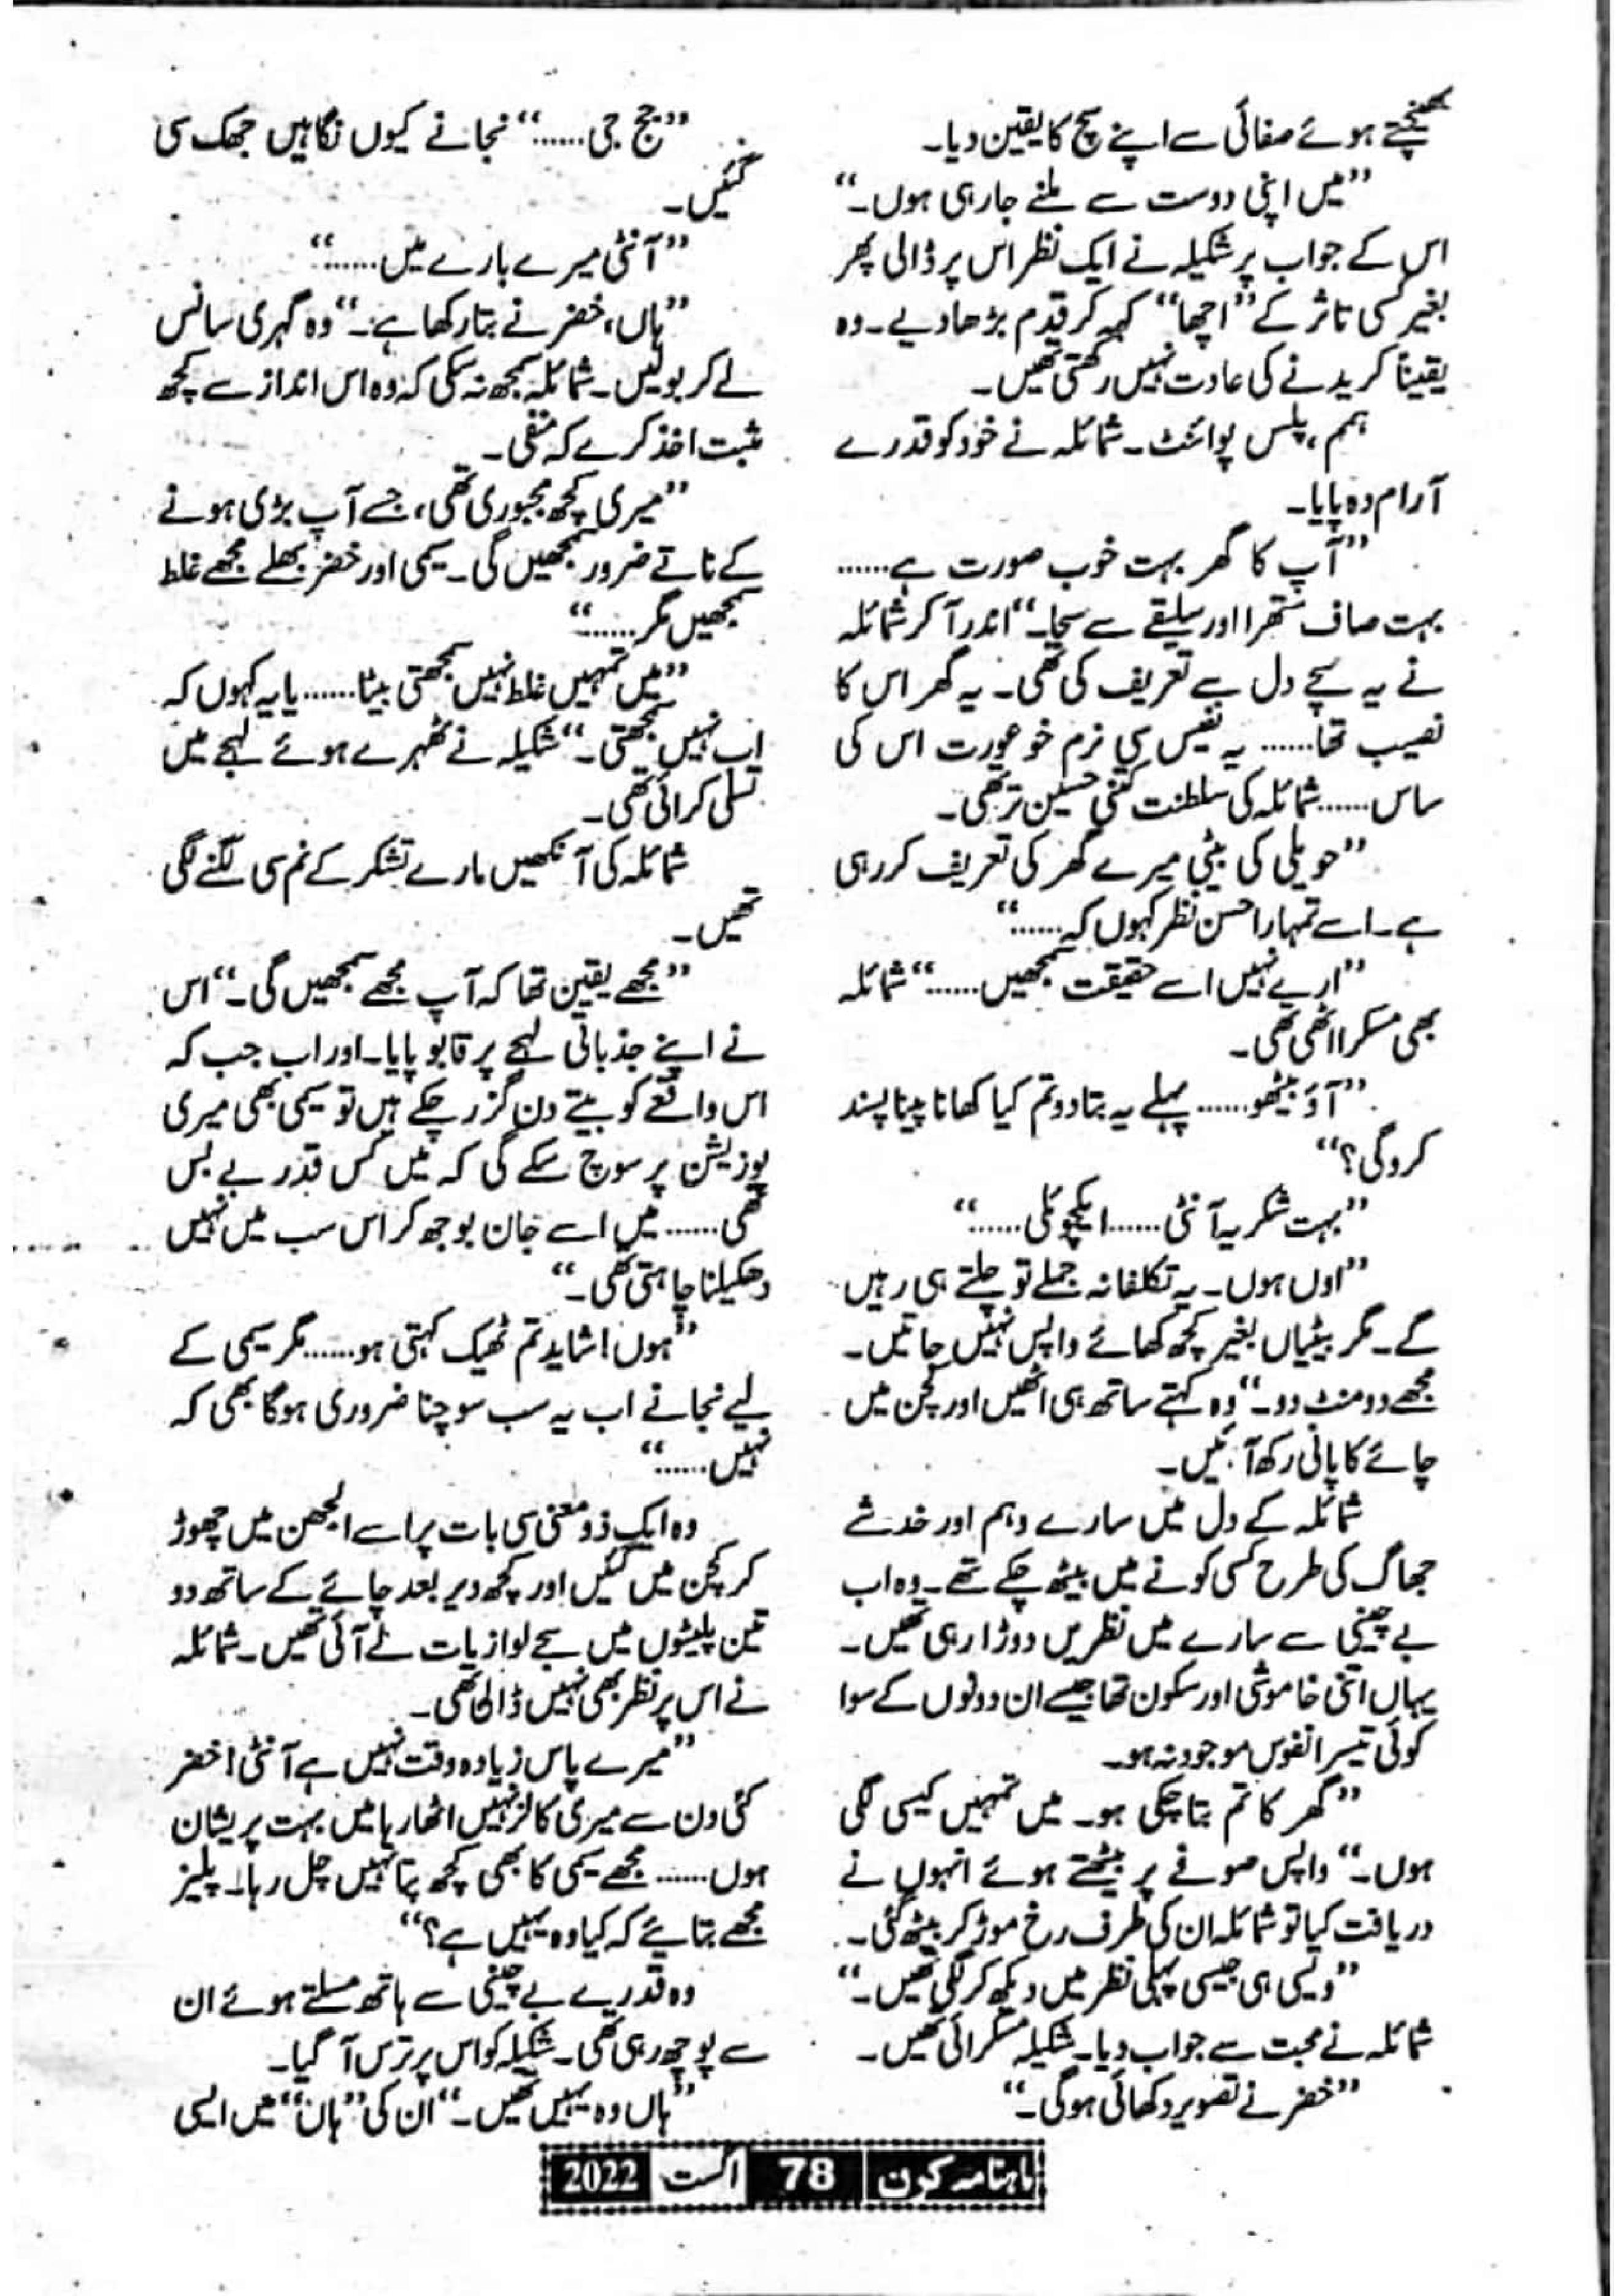 کھنچتے ہوئے صفائی سے اپنے سچ کا یقین دیا۔
”میں اپنی دوست سے ملنے جارہی ہوں۔“
اس کے جواب پر شکیلہ نے ایک نظر اس پر ڈالی پھر
بغیر کسی تاثر کے ”اچھا“ کہہ کر قدم بڑھا دیے۔ وہ
یقیناً کریدنے کی عادت نہیں رکھتی تھیں۔
ہمم، پلس پوائنٹ۔ شمائلہ نے خود کو قدرے
آرام دہ پایا۔
”آپ کا گھر بہت خوب صورت ہے......
بہت صاف ستھرا اور سلیقے سے سجا۔“ اندر آ کر شمائلہ
نے یہ سچے دل سے تعریف کی تھی۔ یہ گھر اس کا
نصیب تھا...... یہ نفیس سی نرم خو عورت اس کی
ساس...... شمائلہ کی سلطنت کتنی حسین تر تھی۔
”حویلی کی بیٹی میرے گھر کی تعریف کررہی
ہے۔ اسے تمہارا حسن نظر کہوں کہ......“
”ارے نہیں اسے حقیقت سمجھیں......“ شمائلہ
بھی مسکرا اٹھی تھی۔
”آؤ بیٹھو...... پہلے یہ بتادو تم کیا کھانا پینا پسند
کروگی؟“
”بہت شکریہ آنٹی...... ایکچوئلی......“
”اوں ہوں۔ یہ تکلفانہ جملے تو چلتے ہی رہیں
گے۔ مگر بیٹیاں بغیر کچھ کھائے واپس نہیں جاتیں۔
مجھے دو منٹ دو۔“ وہ کہتے ساتھ ہی اٹھیں اور کچن میں
چائے کا پانی رکھ آئیں۔
شمائلہ کے دل میں سارے وہم اور خدشے
جھاگ کی طرح کسی کونے میں بیٹھ چکے تھے۔ وہ اب
بے چینی سے سارے میں نظریں دوڑا رہی تھیں۔
یہاں اتنی خاموشی اور سکون تھا جیسے ان دونوں کے سوا
کوئی تیسرا نفوس موجود نہ ہو۔
”گھر کا تم بتا چکی ہو۔ میں تمہیں کیسی لگی
ہوں۔“ واپس صوفے پر بیٹھتے ہوئے انہوں نے
دریافت کیا تو شمائلہ ان کی طرف رخ موڑ کر بیٹھ گئی۔
”ویسی ہی جیسی پہلی نظر میں دیکھ کر لگی تھیں۔“
شمائلہ نے محبت سے جواب دیا۔ شکیلہ مسکرائی تھیں۔
”خضر نے تصویر دکھائی ہوگی۔“
”جج جی......“ نجانے کیوں نگاہیں جھک سی
گئیں۔
”آنٹی میرے بارے میں......“
”ہاں، خضر نے بتا رکھا ہے۔“ وہ گہری سانس
لے کر بولیں۔ شمائلہ سمجھ نہ سکی کہ وہ اس انداز سے کچھ
مثبت اخذ کرے کہ منفی۔
”میری کچھ مجبوری تھی، جسے آپ بڑی ہونے
کے ناتے ضرور سمجھیں گی۔ سیمی اور خضر بھلے مجھے غلط
سمجھیں مگر......“
”میں تمہیں غلط نہیں سمجھتی بیٹا...... یا یہ کہوں کہ
اب نہیں سمجھتی۔“ شکیلہ نے ٹھہرے ہوئے لہجے میں
تسلی کرائی تھی۔
شمائلہ کی آنکھیں مارے تشکر کے نم سی لگنے لگی
تھیں۔
”مجھے یقین تھا کہ آپ مجھے سمجھیں گی۔“ اس
نے اپنے جذباتی لہجے پر قابو پایا۔ اور اب جب کہ
اس واقعے کو بیتے دن گزر چکے ہیں تو سیمی بھی میری
پوزیشن پر سوچ سکے گی کہ میں کس قدر بے بس
تھی...... میں اسے جان بوجھ کر اس سب میں نہیں
دھکیلنا چاہتی تھی۔“
”ہوں! شاید تم ٹھیک کہتی ہو...... مگر سیمی کے
لیے نجانے اب یہ سب سوچنا ضروری ہوگا بھی کہ
نہیں......“
وہ ایک ذو معنی سی بات پر اسے الجھن میں چھوڑ
کر کچن میں گئیں اور کچھ دیر بعد چائے کے ساتھ دو
تین پلیٹوں میں سجے لوازیات لے آئی تھیں۔ شمائلہ
نے اس پر نظر بھی نہیں ڈالی تھی۔
”میرے پاس زیادہ وقت نہیں ہے آنٹی! خضر
کئی دن سے میری کالز نہیں اٹھا رہا میں بہت پریشان
ہوں...... مجھے سیمی کا بھی کچھ پتا نہیں چل رہا۔ پلیز
مجھے بتایئے کہ کیا وہ یہیں ہے؟“
وہ قدرے بے چینی سے ہاتھ مسلتے ہوئے ان
سے پوچھ رہی تھی۔ شکیلہ کو اس پر ترس آ گیا۔
”ہاں وہ یہیں تھیں۔“ ان کی ”ہاں“ میں ایسی
ماہنامہ کرن 78 اگست 2022